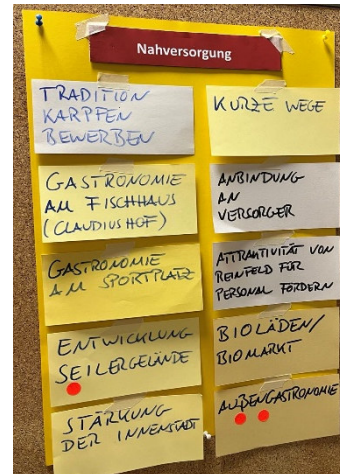 Nahversorgung
TRADITION
KARPFEN
BEWERBEN
GASTRONOMIE
AM FISCHHAUS
(CLAUDIUSHOF)
GASTRONOMIE
AM SPORTPLATZ
ENTWICKLUNG
SEILERGELÄNDE
STÄRKUNG
DER INNENSTADT
KURZE WEGE
ANBINDUNG
AN
VERSORGER
ATTRAKTIVITÄT VON
REINFELD FÜR
PERSONAL FÖRDERN
BIOLÄDEN/
BIOMARKT
AUßENGASTRONOMIE